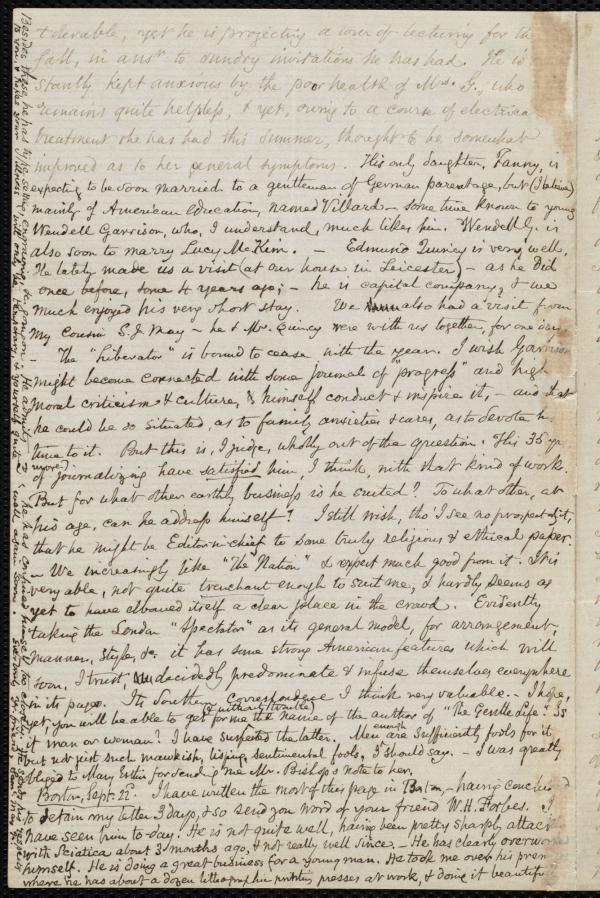 tolerable, yet he is projecting a tour of lecturing for the
fall, in ansr to sundry invitations he has had. He is
stantly kept anxious by the poor health of Mrs. G., who
remains quite helpless, & yet, owing to a course of electrical
treatment she has had this summer, thought to be somewhat
improved as to her general symptoms. His only daughter, Fanny, is
expecting to be soon married to a gentleman of German parentage, but (I believe)
mainly of American education, named Villard - some time known to young
Wendell Garrison, who, I understand, much likes him. Wendell G. is
also soon to marry Lucy McKim. - Edmund Quincy is very well.
He lately made us a visit (at our house in Leicester) - as he did
once before, some 4 years ago; - he is capital company, & we
much enjoyed his very short stay. We also had a visit from
my cousin S. J. May - he & Mr. Quincy were with us together, for one day.
- The "Liberator" is bound to cease with the year. I wish Garrison
might become connected with some journal of "progress" and high
moral criticism & culture, & himself conduct & inspire it, - and that
he could be so situated, as to family anxieties & cares, as to devote his
time to it. But this is, I judge, wholly out of the question. His 35 yrs
(more) of journalizing have satisfied him, I think, with that kind of work.
But for what other earthly business is he suited? To what other, at
his age, can he address himself? I still wish, tho' I see no prospect of it,
that he might be Editor-in-chief to some truly religious & ethical paper.
- We increasingly like "The Nation" & expect much good from it. It is
very able, not quite trenchant enough to suit me, & hardly seems as
yet to have elbowed itself a clear place in the crowd. Evidently
taking the London "Spectator" as its general model, for arrangement,
manner, style, &c. it has some strong American features which will
soon, I trust, decidedly predominate & infuse themselves everywhere
in its pages. Its Southern Correspondence I think very valuable. - I hope,
yet, you will be able to get (without trouble) for me the name of the author of "The Gentle Life". Is
it man or woman? I have suspected the latter. Men are sufficiently fools for it
but not just such mawkish, lisping, sentimental fools, I should say. - I was greatly
obliged to Mary Estlin for sending me Mr. Bishop's note to her.
Boston, Sept. 22. I have written the most of this page in Boston, - having concluded
to detain my letter 3 days, & so send you word of your friend W. H. Forbes. I
have seen him to-day. He is not quite well, having been pretty sharply attacked
with Sciatica about 3 months ago, & not really well since. - He has clearly overworked
himself. He is doing a great business for a young man. He took me over his premises
where he has about a dozen lithographic printing presses at work, & doing it beautifully
Besides these he has type,